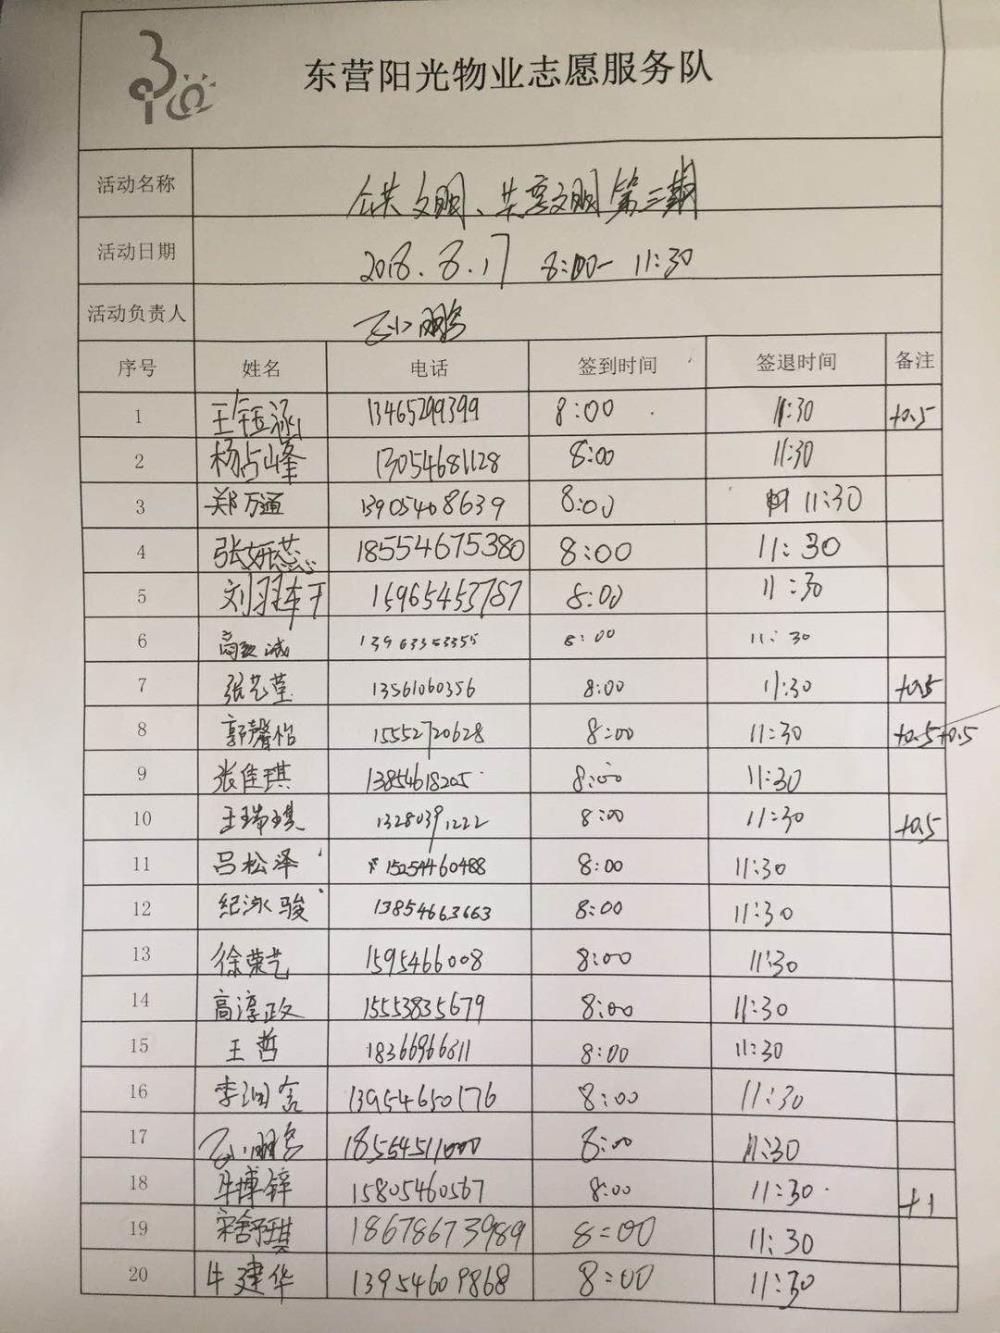 东营阳光物业志愿服务队
活动名称 文明、共享文明第三期
活动日期 2018.8.17 8:00-11:30
活动负责人 孙鹏
序号 姓名 电话 签到时间 签退时间 备注
1 王钰涵 13465299399 8:00 11:30 +0.5
2 杨占峰 13054681128 8:00 11:30
3 郑万通 13905468639 8:00 11:30
4 张妍蕊 18554675380 8:00 11:30
5 15965453787 8:00 11:30
6 13963353355 8:00 11:30
7 张艺莹 13561060356 8:00 11:30 +0.5
8 郭馨怡 15552720628 8:00 11:30 +0.5+0.5
9 张佳琪 13854618205 8:00 11:30
10 王瑞琪 13280391222 8:00 11:30 +0.5
11 吕松泽 15254460488 8:00 11:30
12 纪泳骏 13854663663 8:00 11:30
13 徐荣艺 1595466008 8:00 11:30
14 高淳政 15553835679 8:00 11:30
15 王哲 18366966811 8:00 11:30
16 李润 13954650176 8:00 11:30
17 8:00 11:30
18 牟博锌 15805460567 8:00 11:30 +1
19 宋舒琪 18678673989 8:00 11:30
20 牛建华 13954609868 8:00 11:30